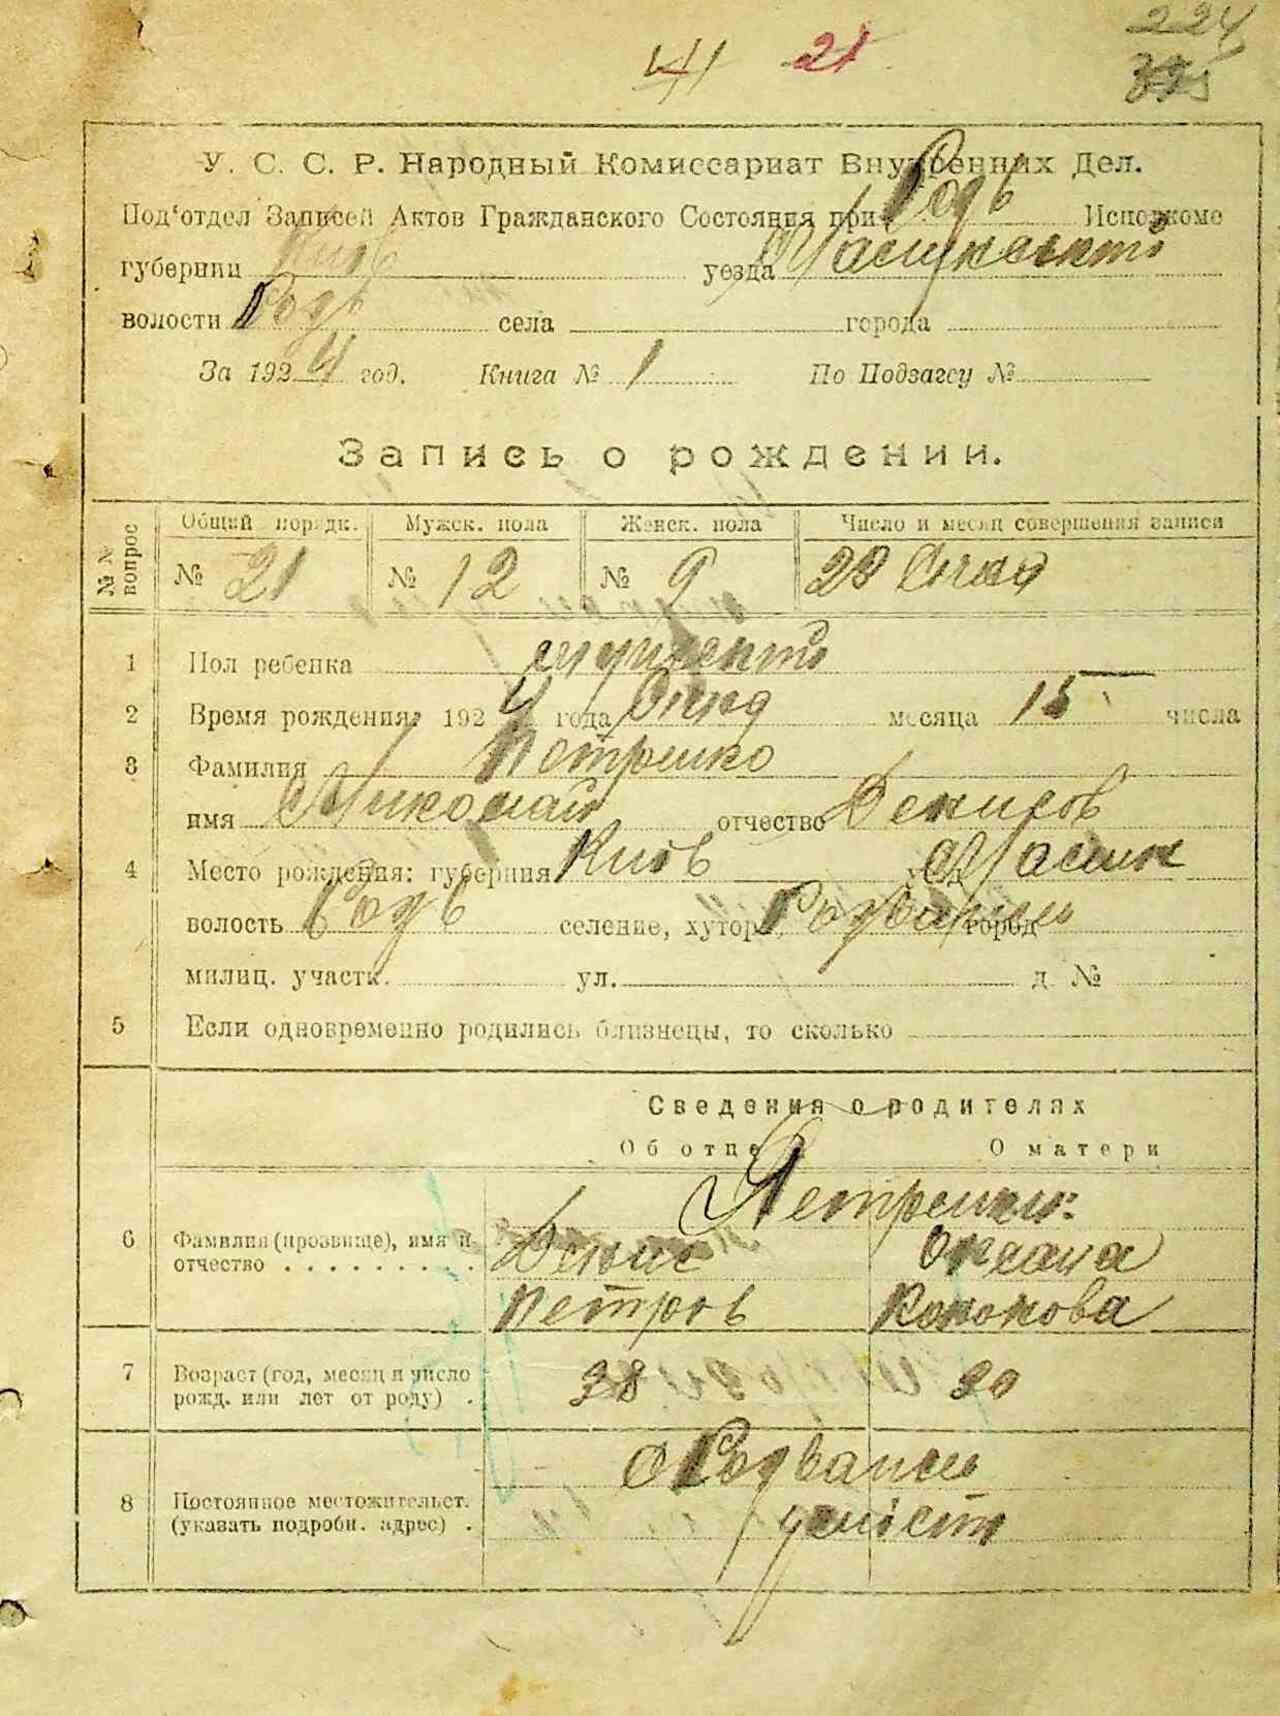 41 21 224
У. С. С. Р. Народный Комиссариат Внутренних Дел.
Под'отдел Записей Актов Гражданского Состояния при Исполкоме
губернии Київ уезда
волости села города
За 1924 год. Книга № 1 По Подзагсу №
Запись о рождении.
№№ вопрос Общий порядк. Мужск. пола Женск. пола Число и месяц совершения записи
№ 21 № 12 № 9
1 Пол ребенка
2 Время рождения: 1924 года месяца 15 числа
3 Фамилия Петренко
имя Миколай отчество Денисов
4 Место рождения: губерния Київ
волость селение, хутор, город
милиц. участк. ул. д. №
5 Если одновременно родились близнецы, то сколько
Сведения о родителях
Об отце О матери
Петренки:
6 Фамилия (прозвище), имя и Денис Оксана
отчество . . . . . . . . . Петров Кононова
7 Возраст (год, месяц и число 38 30
рожд. или лет от роду) .
8 Постоянное местожительст.
(указать подробн. адрес) .